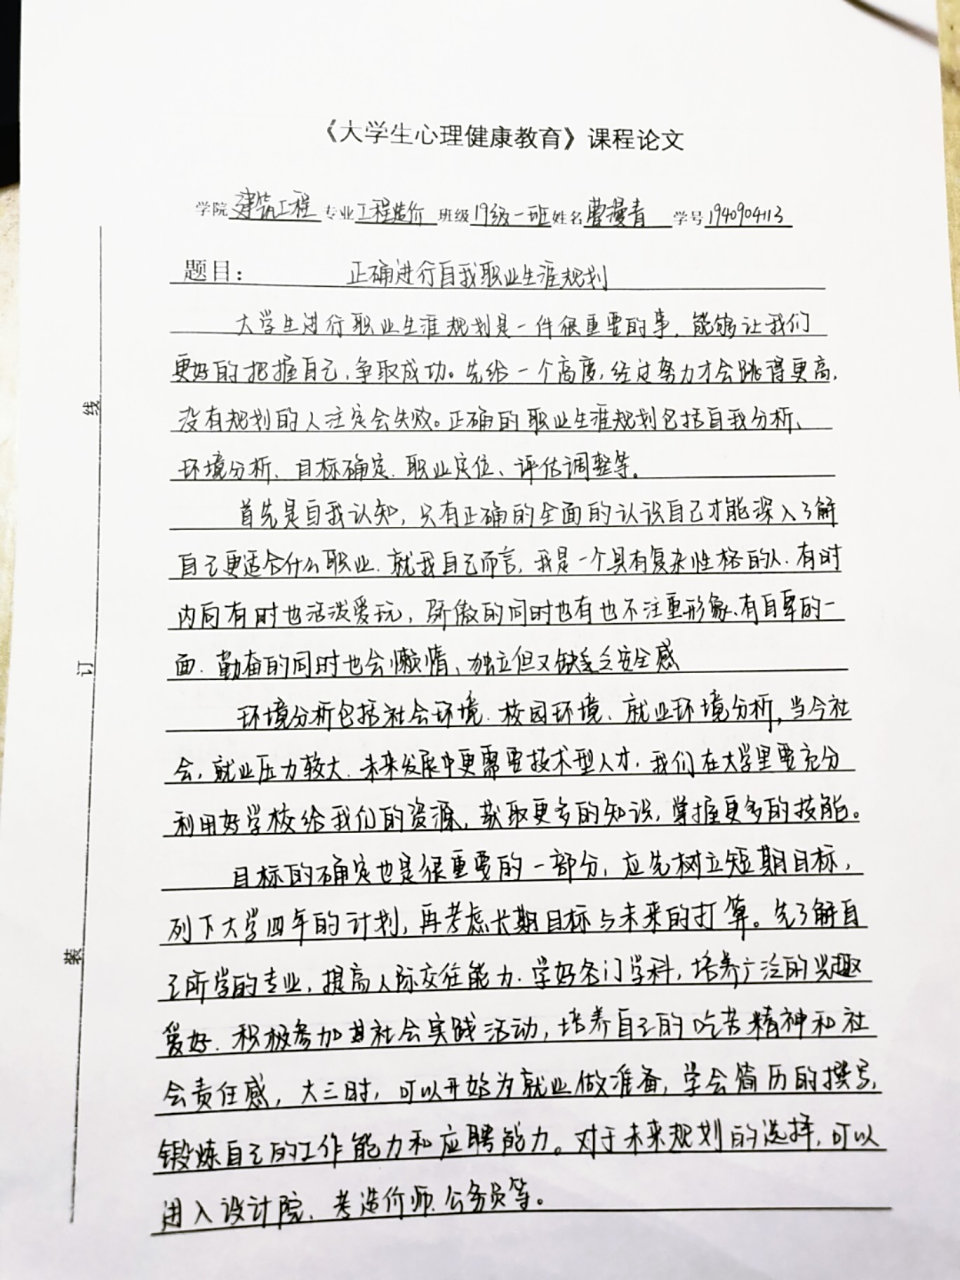 《大学生心理健康教育》课程论文
学院 建筑工程 专业 工程造价 班级 19级一班 姓名 曹漫青 学号 1940904113
题目： 正确进行自我职业生涯规划
大学生进行职业生涯规划是一件很重要的事，能够让我们
更好的把握自己，争取成功。先给一个高度，经过努力才会跳得更高，
没有规划的人注定会失败。正确的职业生涯规划包括自我分析、
环境分析、目标确定、职业定位、评估调整等。
首先是自我认知，只有正确的全面的认识自己才能深入了解
自己更适合什么职业，就我自己而言，我是一个具有复杂性格的人，有时
内向有时也活泼爱玩，骄傲的同时也有也不注重形象、有自卑的一
面，勤奋的同时也会懒惰、独立但又缺乏安全感
环境分析包括社会环境、校园环境、就业环境分析，当今社
会，就业压力较大，未来发展中更需要技术型人才，我们在大学里要充分
利用好学校给我们的资源，获取更多的知识，掌握更多的技能。
目标的确定也是很重要的一部分，应先树立短期目标，
列下大学四年的计划，再考虑长期目标与未来的打算。先了解自
己所学的专业，提高人际交往能力，学好各门学科，培养广泛的兴趣
爱好，积极参加社会实践活动，培养自己的吃苦精神和社
会责任感，大三时，可以开始为就业做准备，学会简历的撰写，
锻炼自己的工作能力和应聘能力。对于未来规划的选择，可以
进入设计院、考造价师、公务员等。
线
订
装